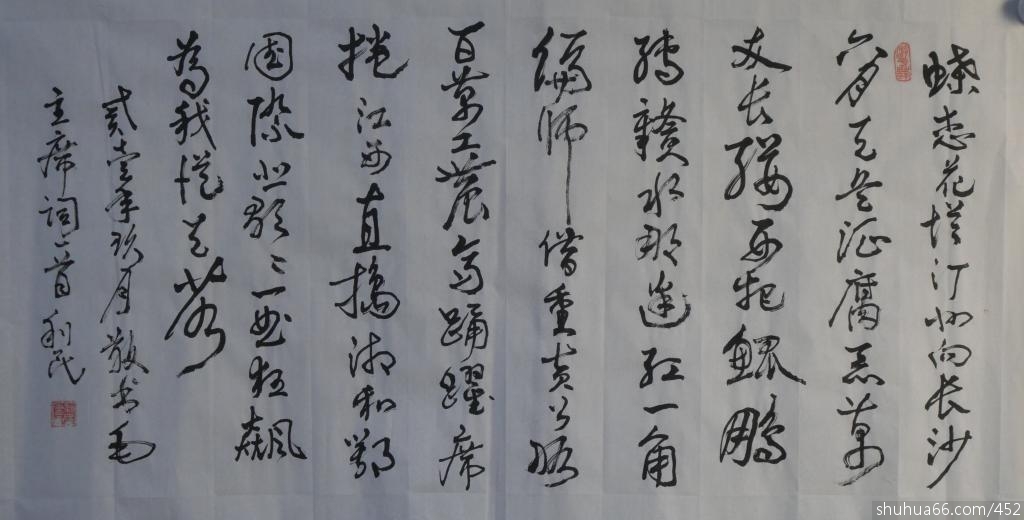 蝶恋花 從汀州向长沙
六月天兵征腐恶萬
丈长缨要把鲲鹏
缚赣水那边红一角
偏师借重黄公略
百萬工農齐踊躍席
捲江西直捣湘和鄂
國際悲歌々一曲狂飙
為我從天落
贰壹年玖月敬书毛
主席词一首 利民
shuhua66.com/452